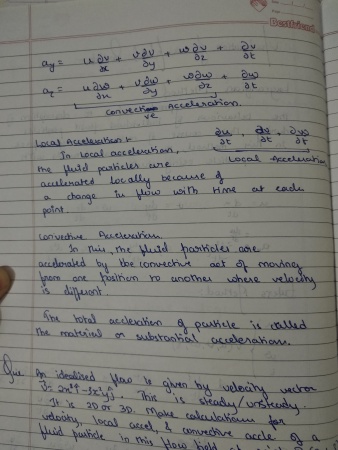 Bestfriend
ay = u ∂v/∂x + v ∂v/∂y + w ∂v/∂z + ∂v/∂t
az = u ∂w/∂x + v ∂w/∂y + w ∂w/∂z + ∂w/∂t
convective Acceleration.
Local Acceleration :-
In local acceleration, ∂u/∂t, ∂v/∂t, ∂w/∂t
the fluid particles are Local Acceleration
accelerated locally because of
a change in flow with time at each
point.
Convective Acceleration.
In this, the fluid particles are
accelerated by the convective act of moving
from one position to another where velocity
is different.
The total acceleration of particle is called
the material or substantial accelerations.
Que An idealised flow is given by velocity vector
This is steady/unsteady.
It is 2D or 3D. Make calculations for
velocity, local accel, & convective accle of a
fluid particle in this flow field